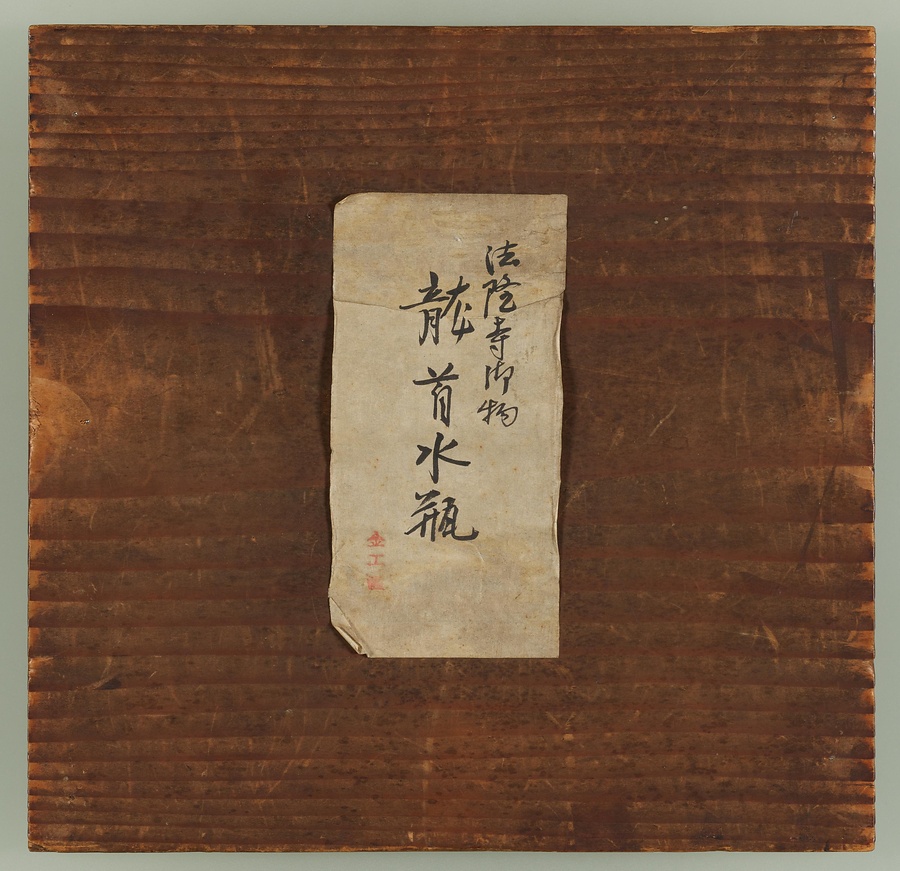 法隆寺御物
龍首水瓶
金工